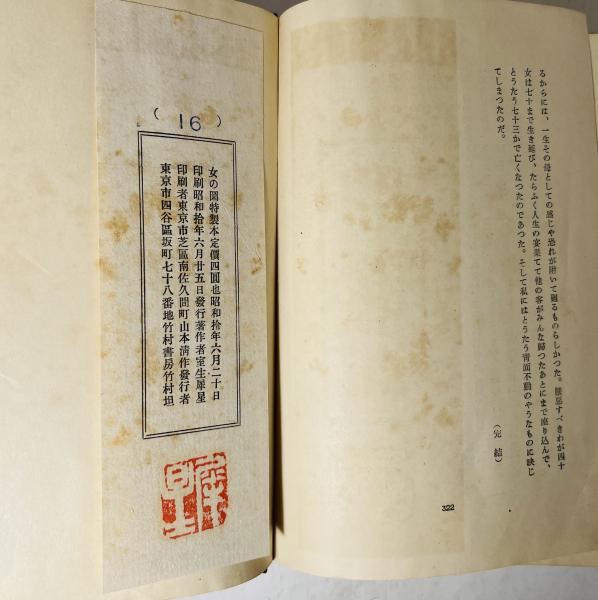 るからには、一生その母としての感じや恐れが附いて廻るものらしかつた。嫉忌すべきわが四十
女は七十まで生き延び、たらふく人生の宴果てて他の客がみんな歸つたあとにまで座り込んで、
とうたう七十三かで亡くなつたのであつた。そして私にはとうたう靑面不動のやうなものに映じ
てしまつたのだ。
(完結)
322
(16)
女の圖特製本定價四圓也昭和拾年六月二十日
印刷昭和拾年六月廿五日發行著作者室生犀星
印刷者東京市芝區南佐久間町山本淸作發行者
東京市四谷區坂町七十八番地竹村書房竹村坦